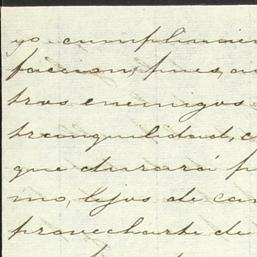 yo cumplimien
faccion, pues, au
tros enemigos
tranquilidad, c
que durará p
mo, lejos de can
provecharte de